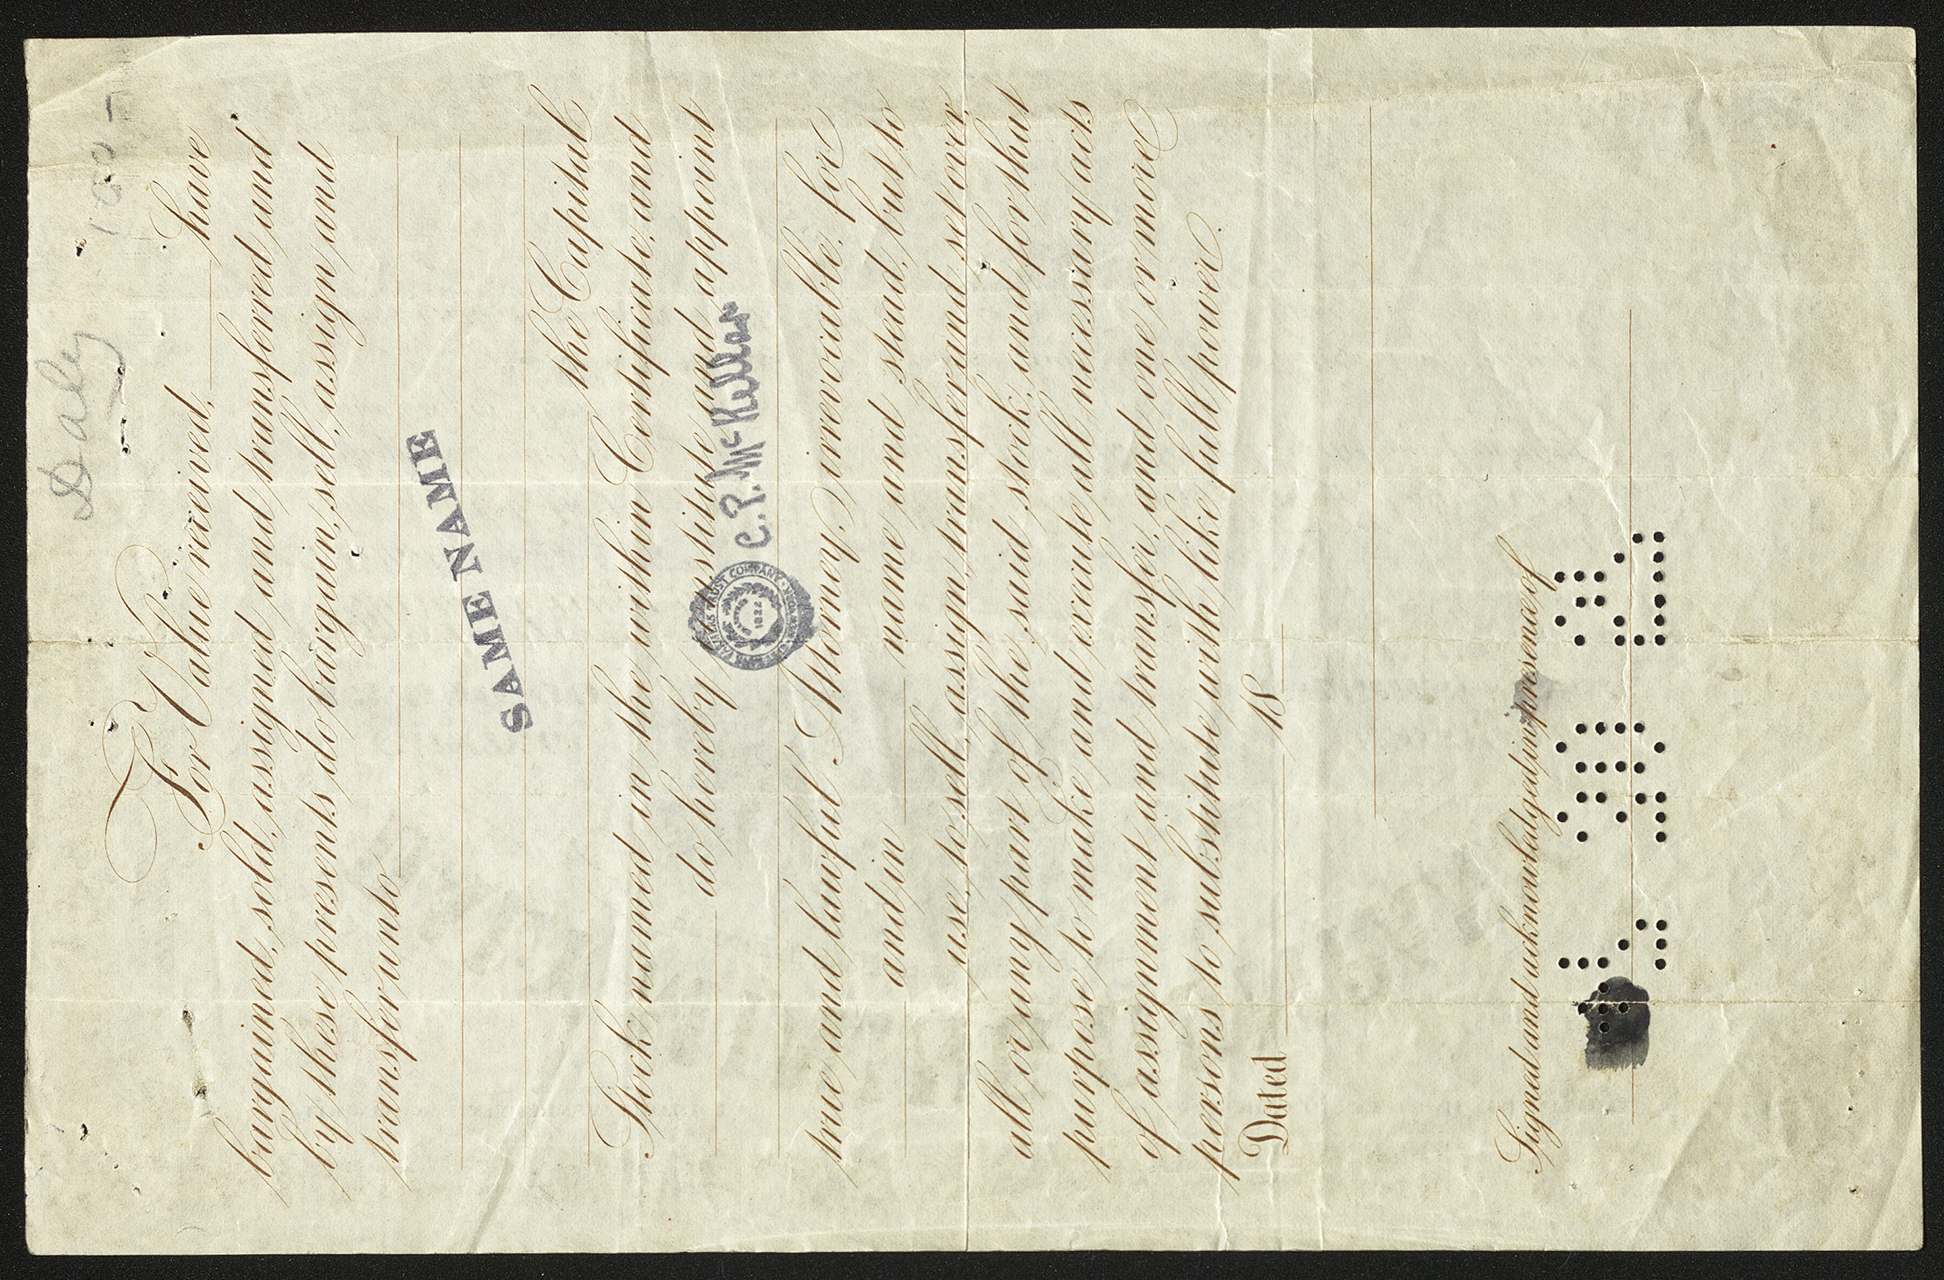 Daly
100 -
For Value received, have
bargained, sold, assigned and transferred and
by these presents do bargain, sell, assign and
transfer unto
SAME NAME
the Capital
Stock named in the within Certificate, and
do hereby constitute and appoint
C. P. McKellar
1822
true and lawful Attorney, irrevocable, for
and in name and stead, but to
use, to sell, assign, transfer and set over,
all or any part of the said stock, and for that
purpose to make and execute all necessary acts
of assignment and transfer, and one or more
persons to substitute with like full power.
Dated 18
Signed and acknowledged in presence of